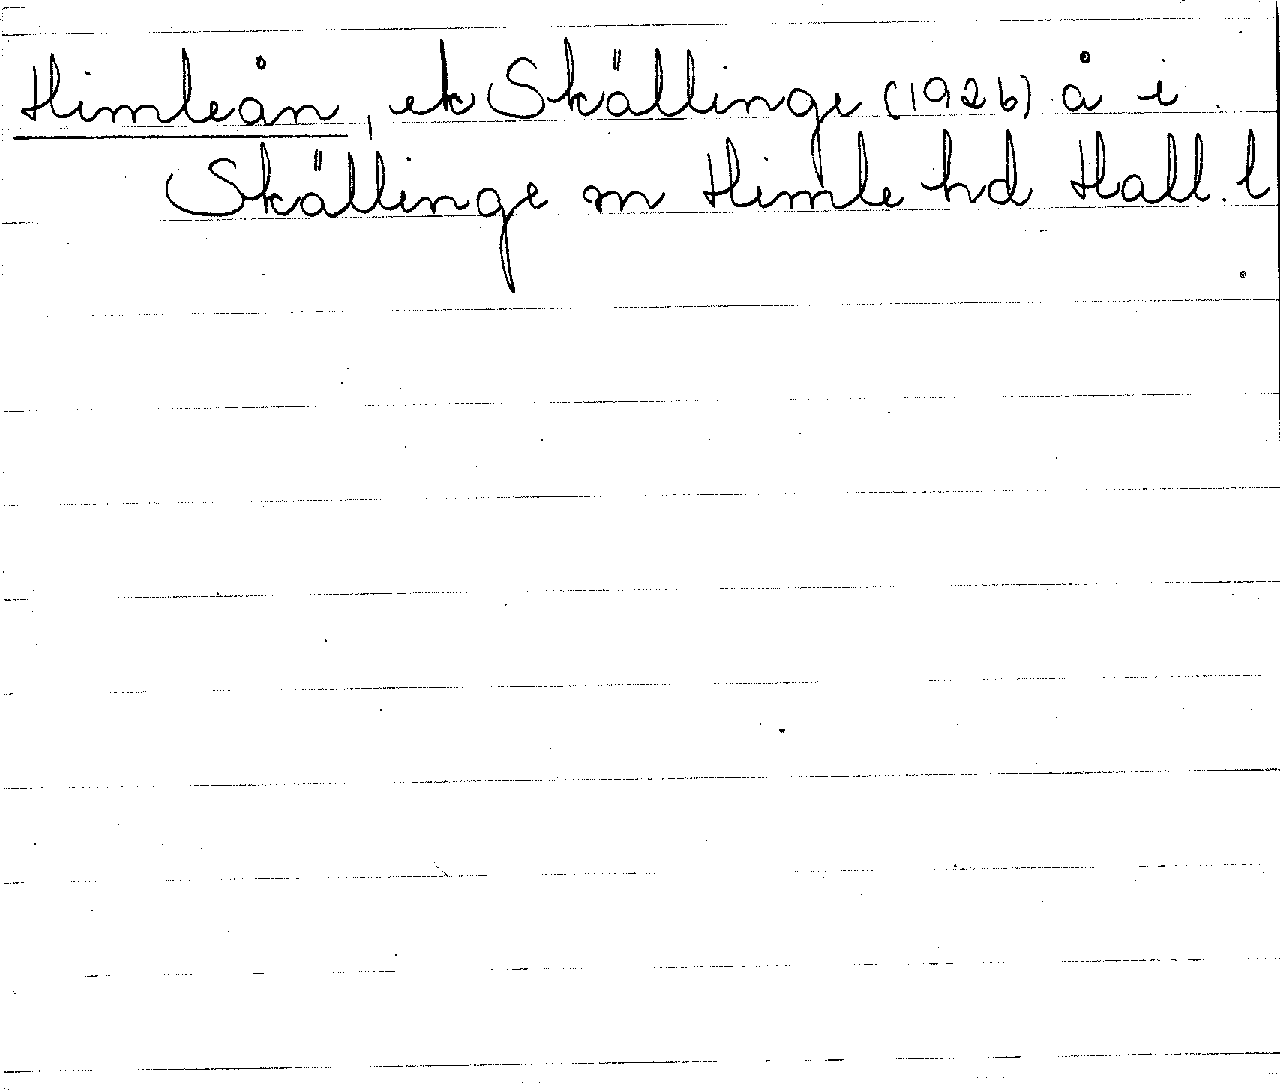 Himleån, ek Skällinge (1926) å i
Skällinge m Himle hd Hall. l